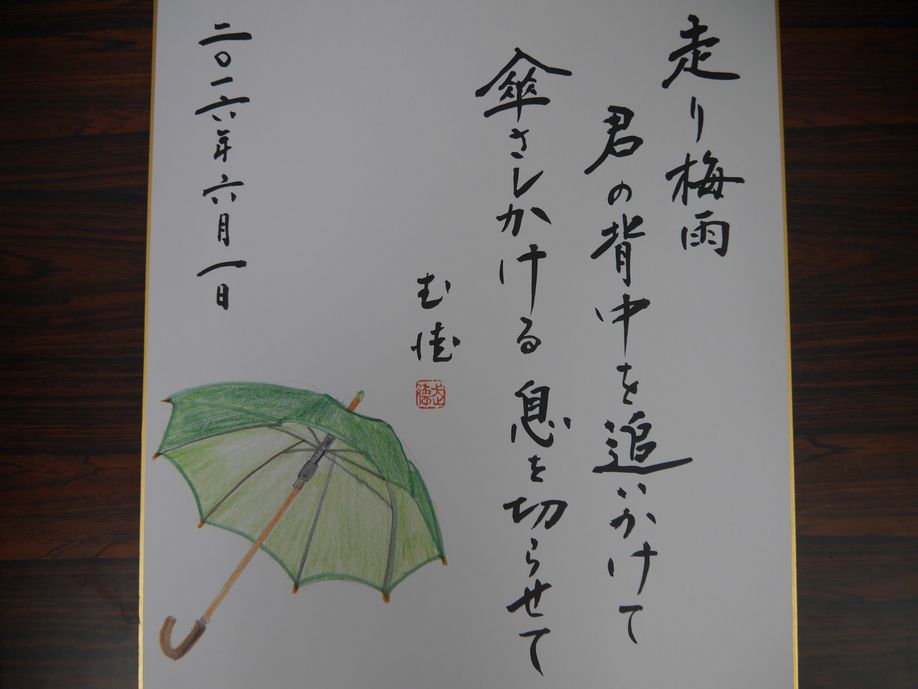 走り梅雨
君の背中を追いかけて
傘さしかける 息を切らせて
二〇一六年六月一日